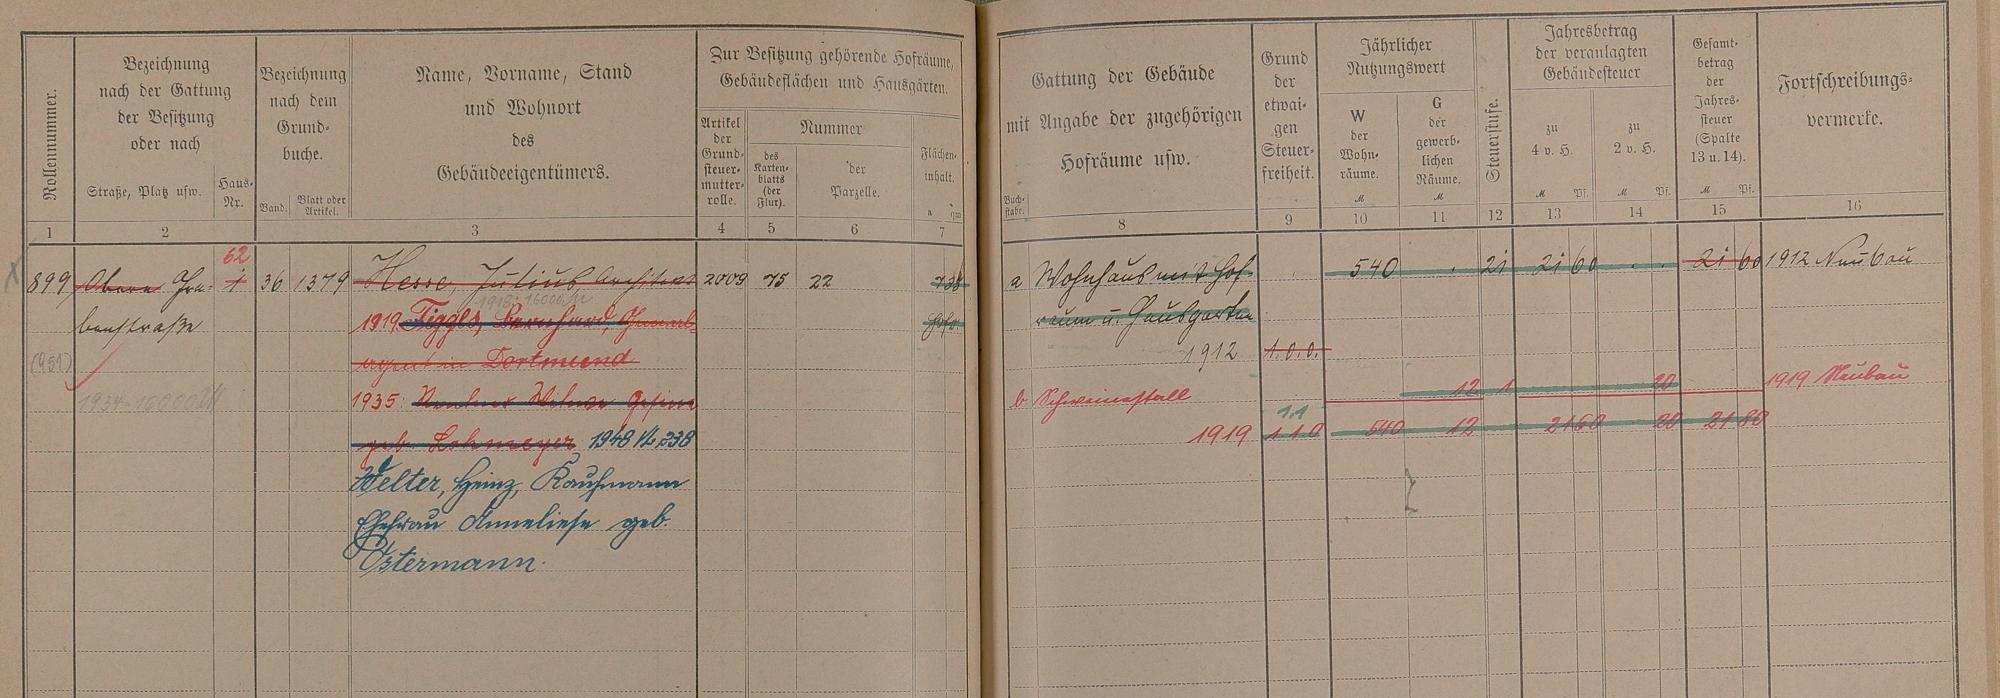 Rollennummer.
Bezeichnung
nach der Gattung
der Besitzung
oder nach
Straße, Platz usw.
Haus-
Nr.
Bezeichnung
nach dem
Grund-
buche.
Band.
Blatt oder
Artikel.
Name, Vorname, Stand
und Wohnort
des
Gebäudeeigentümers.
Zur Besitzung gehörende Hofräume,
Gebäudeflächen und Hausgärten.
Artikel
der
Grund-
steuer-
mutter-
rolle.
Nummer
des
Karten-
blatts
(der
Flur).
der
Parzelle.
Flächen-
inhalt.
a qm
1 2 3 4 5 6 7
62
899 Obere Gra- 1 36 1379 Hesse, Julius Architekt 2009 75 22 738
1918: 16000 M
benstraße 1919 Figges, Bernhard, General- Hofr.
(951) agent in Dortmund
1934 - 16000 M 1935 Rentner Witwe Gesine
geb. Lohmeyer 1948 № 238
Welter, Heinz, Kaufmann
Ehefrau Anneliese geb.
Ostermann.
Gattung der Gebäude
mit Angabe der zugehörigen
Hofräume usw.
Buch-
stabe.
Grund
der
etwai-
gen
Steuer-
freiheit.
Jährlicher
Nutzungswert
W
der
Wohn-
räume.
M
G
der
gewerb-
lichen
Räume.
M
Steuerstufe.
Jahresbetrag
der veranlagten
Gebäudesteuer
zu
4 v. H.
M Pf.
zu
2 v. H.
M Pf.
Gesamt-
betrag
der
Jahres-
steuer
(Spalte
13 u. 14).
M Pf.
Fortschreibungs-
vermerke.
8 9 10 11 12 13 14 15 16
a Wohnhaus mit Hof- . 540 . 21 21 60 . . 21 60 1912 Neubau
raum u. Hausgarten
1912 1.0.0.
b Schweinestall 12 1 20 1919 Neubau
1.1
1919 1 1 0 540 12 21 60 20 21 80